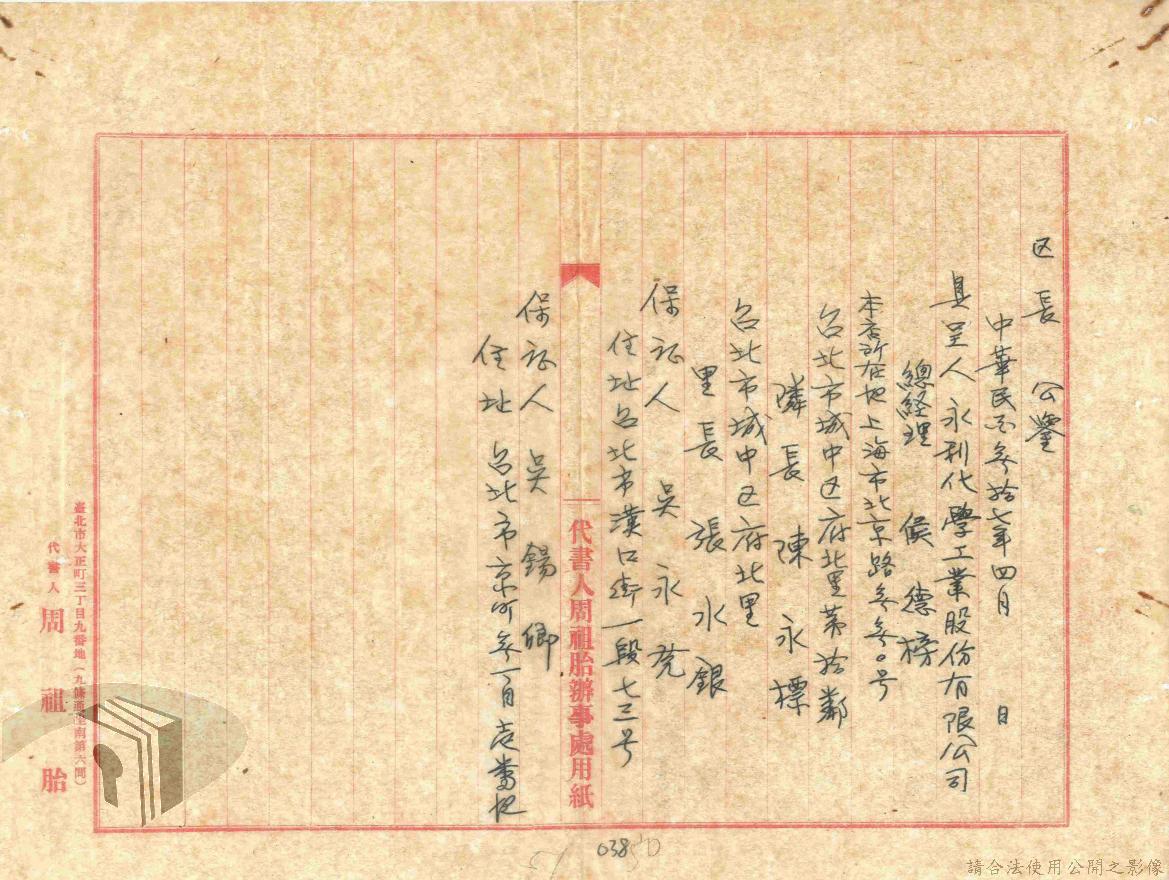 区長 公鑒
中華民国参拾七年四月 日
具呈人 永利化學工業股份有限公司
總経理 侯德榜
本店所在地上海市北京路参参〇号
台北市城中区府北里第拾鄰
隣長 陳永標
台北市城中区府北里
里長 張水銀
保证人 吳永
住址台北市漢口街一段七三号
代書人周祖胎辦事處用紙
保证人 吳錫卿
住址 台北市京町参丁目
臺北市大正町三丁目九番地（九條通至南第六間）
代書人 周祖胎
038
請合法使用公開之影像